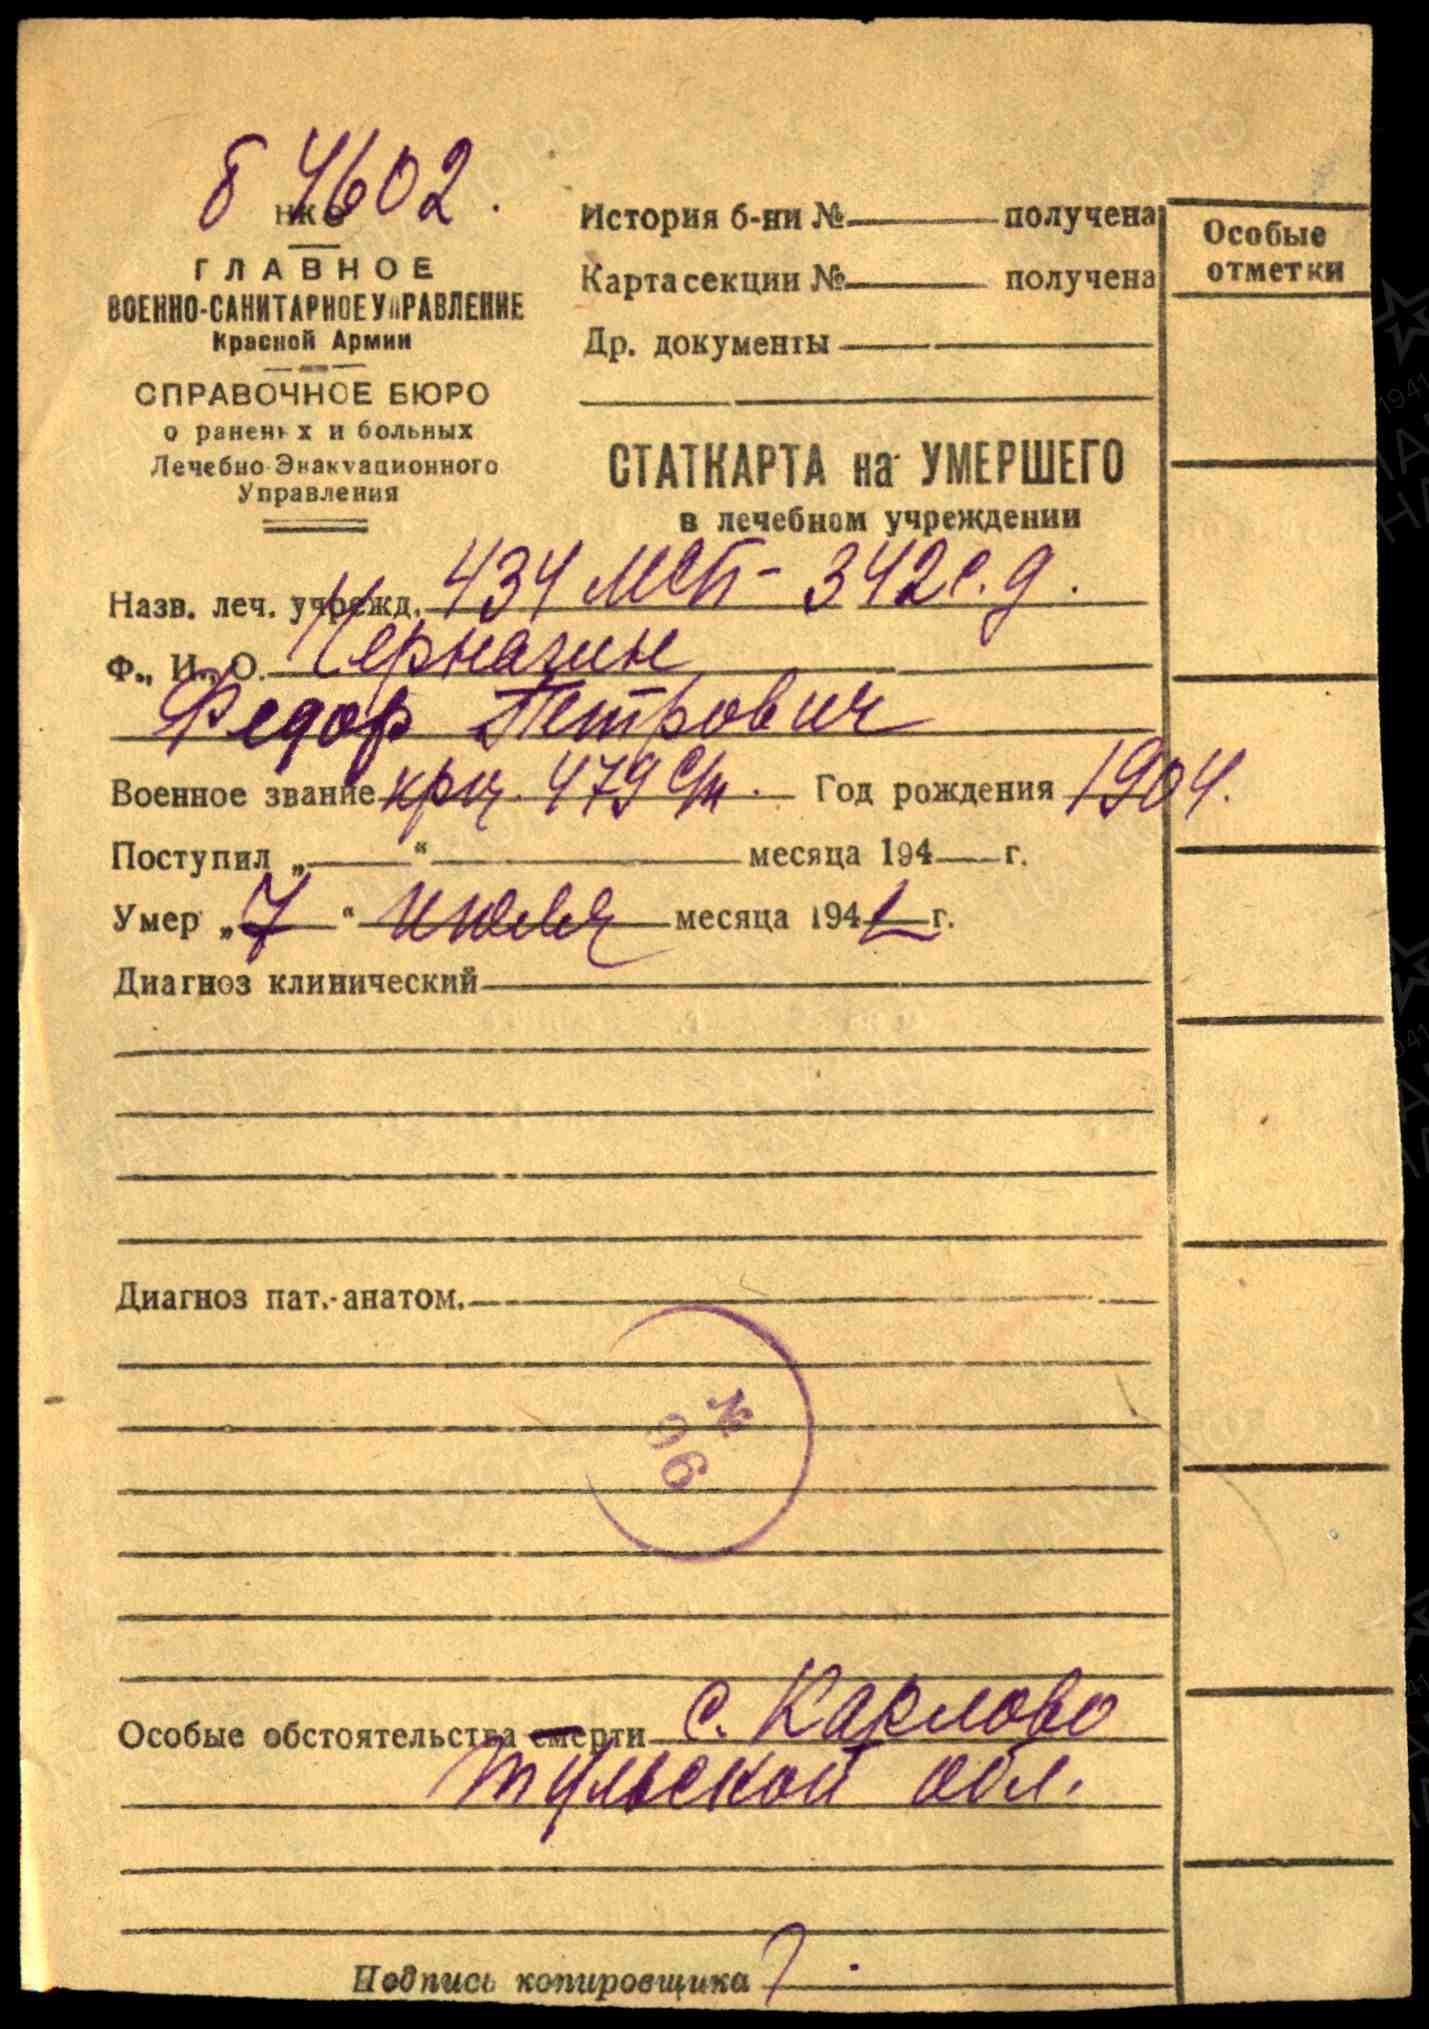 б 4602.
НКО
ГЛАВНОЕ
ВОЕННО-САНИТАРНОЕ УПРАВЛЕНИЕ
Красной Армии
СПРАВОЧНОЕ БЮРО
о раненых и больных
Лечебно-Эвакуационного
Управления
История б-ни № получена
Карта секции № получена
Др. документы
Особые
отметки
СТАТКАРТА на УМЕРШЕГО
в лечебном учреждении
Назв. леч. учрежд. 434 МСБ - 342 с. д.
Ф., И., О. Чернагин
Федор Петрович
Военное звание крц. 479 с/п. Год рождения 1904.
Поступил „ “ месяца 194 г.
Умер „7“ июля месяца 1942 г.
Диагноз клинический
Диагноз пат.-анатом.
№
96
Особые обстоятельства смерти с. Карлово
Тульской обл.
Подпись копировщика